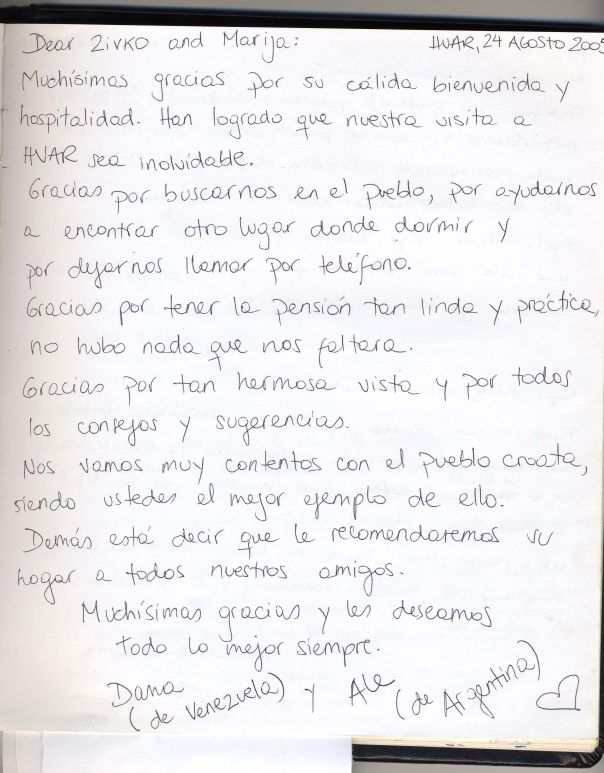 Dear Zivko and Marija:
HVAR, 24 AGOSTO 2005
Muchísimas gracias por su cálida bienvenida y
hospitalidad. Han logrado que nuestra visita a
HVAR sea inolvidable.
Gracias por buscarnos en el pueblo, por ayudarnos
a encontrar otro lugar donde dormir y
por dejarnos llamar por teléfono.
Gracias por tener la pensión tan linda y práctica,
no hubo nada que nos faltara.
Gracias por tan hermosa vista y por todos
los consejos y sugerencias.
Nos vamos muy contentos con el pueblo croata,
siendo ustedes el mejor ejemplo de ello.
Demás está decir que le recomendaremos su
hogar a todos nuestros amigos.
Muchísimas gracias y les deseamos
todo lo mejor siempre.
Dama y Ale
(de Venezuela) (de Argentina)